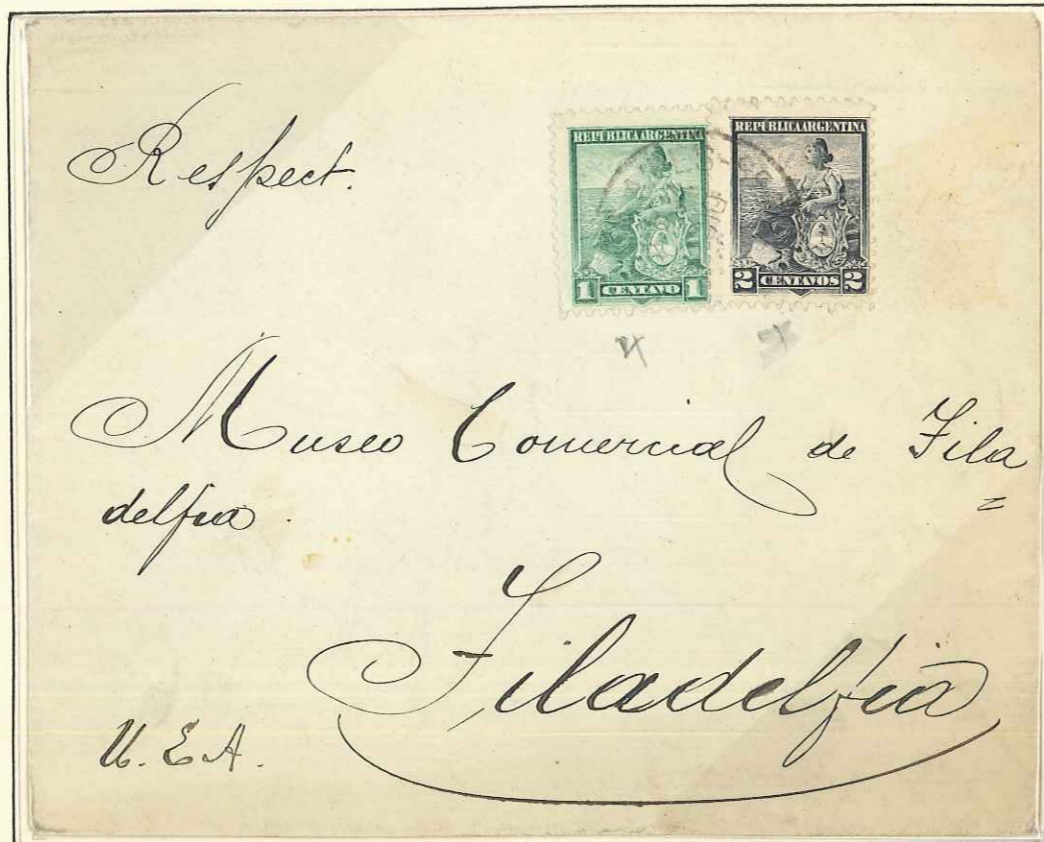 Respect.
REPUBLICA ARGENTINA
1 CENTAVO 1
REPUBLICA ARGENTINA
2 CENTAVOS 2
Museo Comercial de Fila=
delfia
Filadelfia
U. E. A.